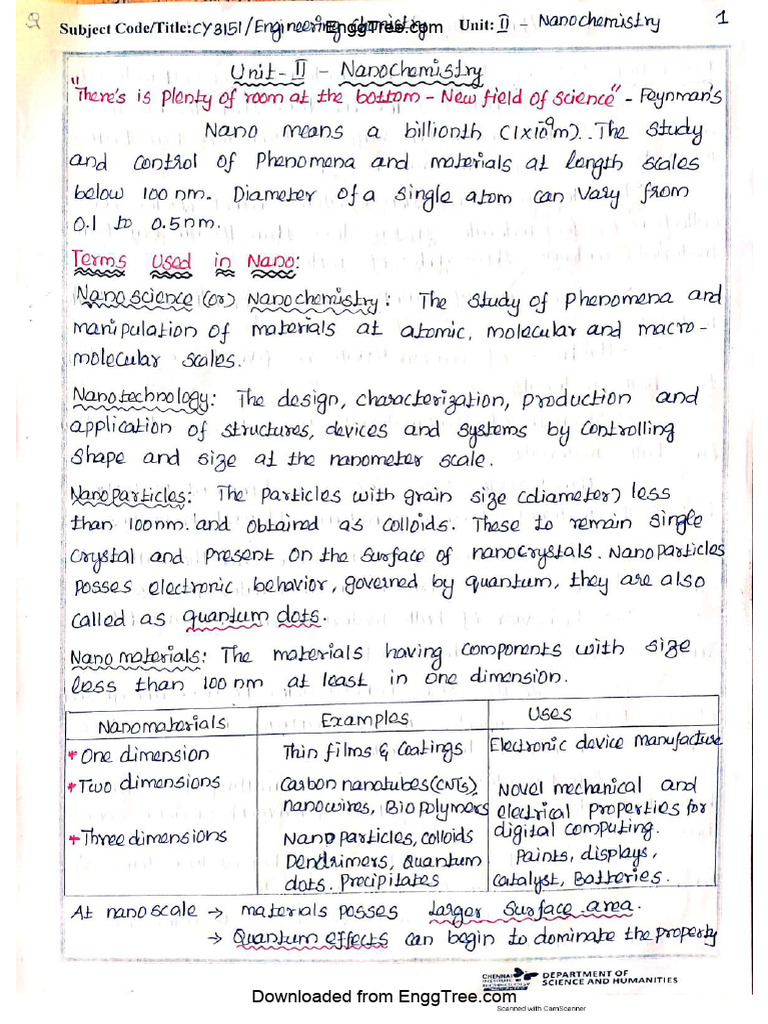 2
Subject Code/Title: CY3151/Engineering Chemistry EnggTree.com Unit: II - Nanochemistry 1
Unit-II - NanoChemistry
"There's is plenty of room at the bottom - New field of science" - Feynman's
Nano means a billionth (1x10⁻⁹m). The study
and control of Phenomena and materials at length scales
below 100 nm. Diameter of a single atom can vary from
0.1 to 0.5nm.
Terms Used in Nano:
Nanoscience (or) Nanochemistry: The study of Phenomena and
manipulation of materials at atomic, molecular and macro-
molecular scales.
Nanotechnology: The design, characterization, production and
application of structures, devices and systems by controlling
shape and size at the nanometer scale.
NanoParticles: The Particles with grain size (diameter) less
than 100nm. and obtained as colloids. These to remain single
crystal and present on the surface of nanocrystals. NanoParticles
posses electronic behavior, governed by quantum, they are also
called as quantum dots.
Nanomaterials: The materials having components with size
less than 100 nm at least in one dimension.
Nanomaterials Examples Uses
* One dimension Thin films & Coatings Electronic device manufacture
* Two dimensions Carbon nanotubes (CNTs) Novel mechanical and
nanowires, Biopolymers electrical properties for
digital computing.
* Three dimensions Nano particles, colloids
Dendrimers, Quantum Paints, displays,
dots. Precipitates Catalyst, Batteries.
At nanoscale → materials posses Larger Surface area.
→ Quantum effects can begin to dominate the property
CHENNAI INSTITUTE OF TECHNOLOGY DEPARTMENT OF
SCIENCE AND HUMANITIES
Downloaded from EnggTree.com
Scanned with CamScanner